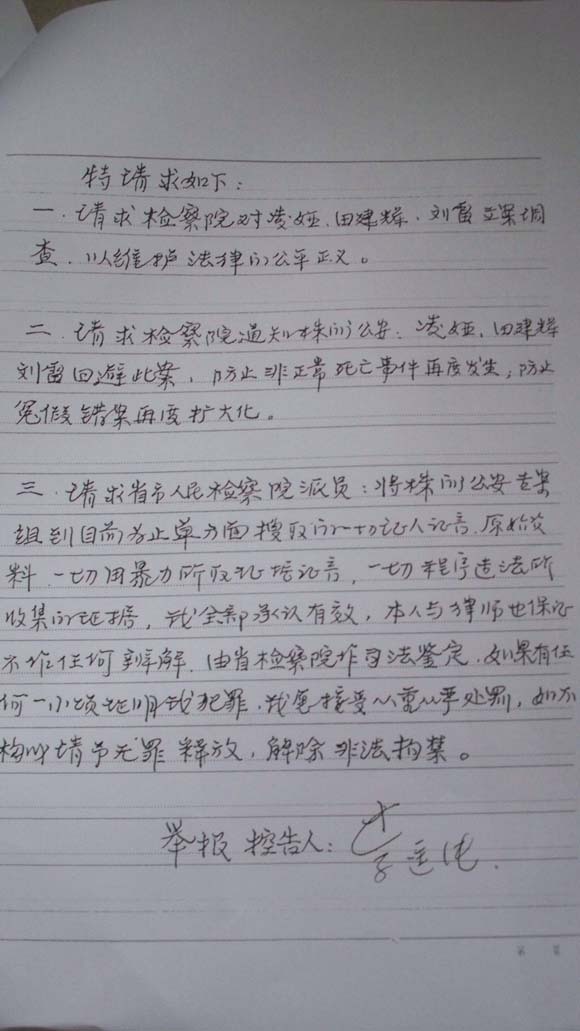 特请求如下：
一．请求检察院对凌娅．田建辉．刘雷立案调
查．以维护法律的公平正义。
二．请求检察院通知株洲公安：凌娅．田建辉
刘雷回避此案，防止非正常死亡事件再度发生；防止
冤假错案再度扩大化。
三．请求省市人民检察院派员：将株洲公安专案
组到目前为止单方面搜取的一切证人证言．原始资
料．一切用暴力所取证据证言，一切程序违法所
收集的证据，我全部承认有效，本人与律师也保证
不作任何辩解．由省检察院作司法鉴定．如果有任
何一小项证明我犯罪．我愿接受从重从严处罚，如不
构成请予无罪释放，解除非法拘禁。
举报 控告人：